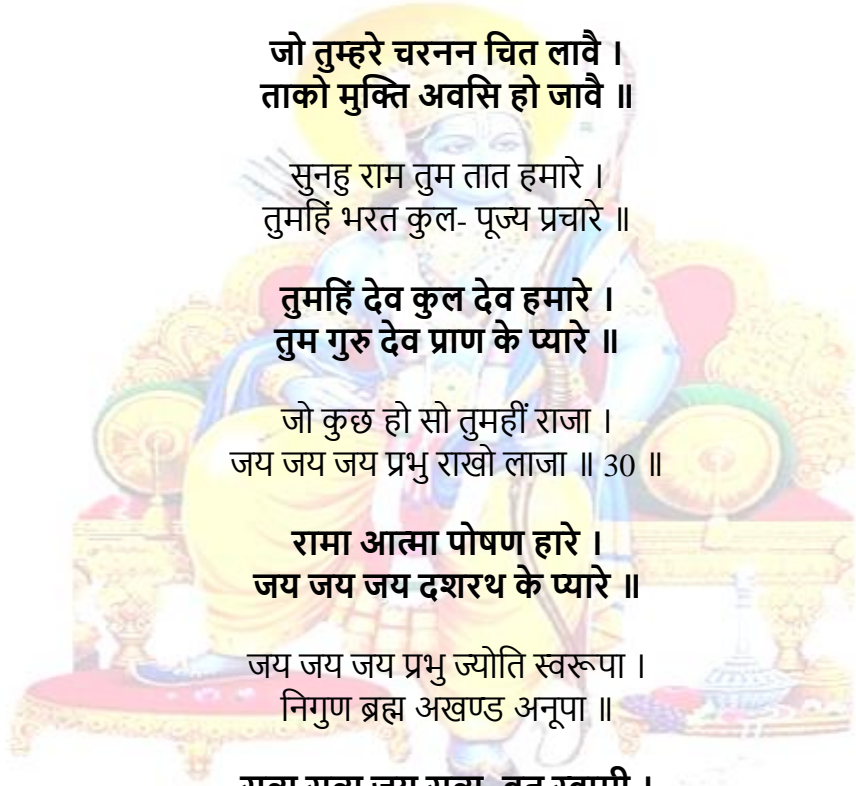 जो तुम्हरे चरनन चित लावै ।
ताको मुक्ति अवसि हो जावै ॥
सुनहु राम तुम तात हमारे ।
तुमहिं भरत कुल- पूज्य प्रचारे ॥
तुमहिं देव कुल देव हमारे ।
तुम गुरु देव प्राण के प्यारे ॥
जो कुछ हो सो तुमहीं राजा ।
जय जय जय प्रभु राखो लाजा ॥ 30 ॥
रामा आत्मा पोषण हारे ।
जय जय जय दशरथ के प्यारे ॥
जय जय जय प्रभु ज्योति स्वरूपा ।
निगुण ब्रह्म अखण्ड अनूपा ॥